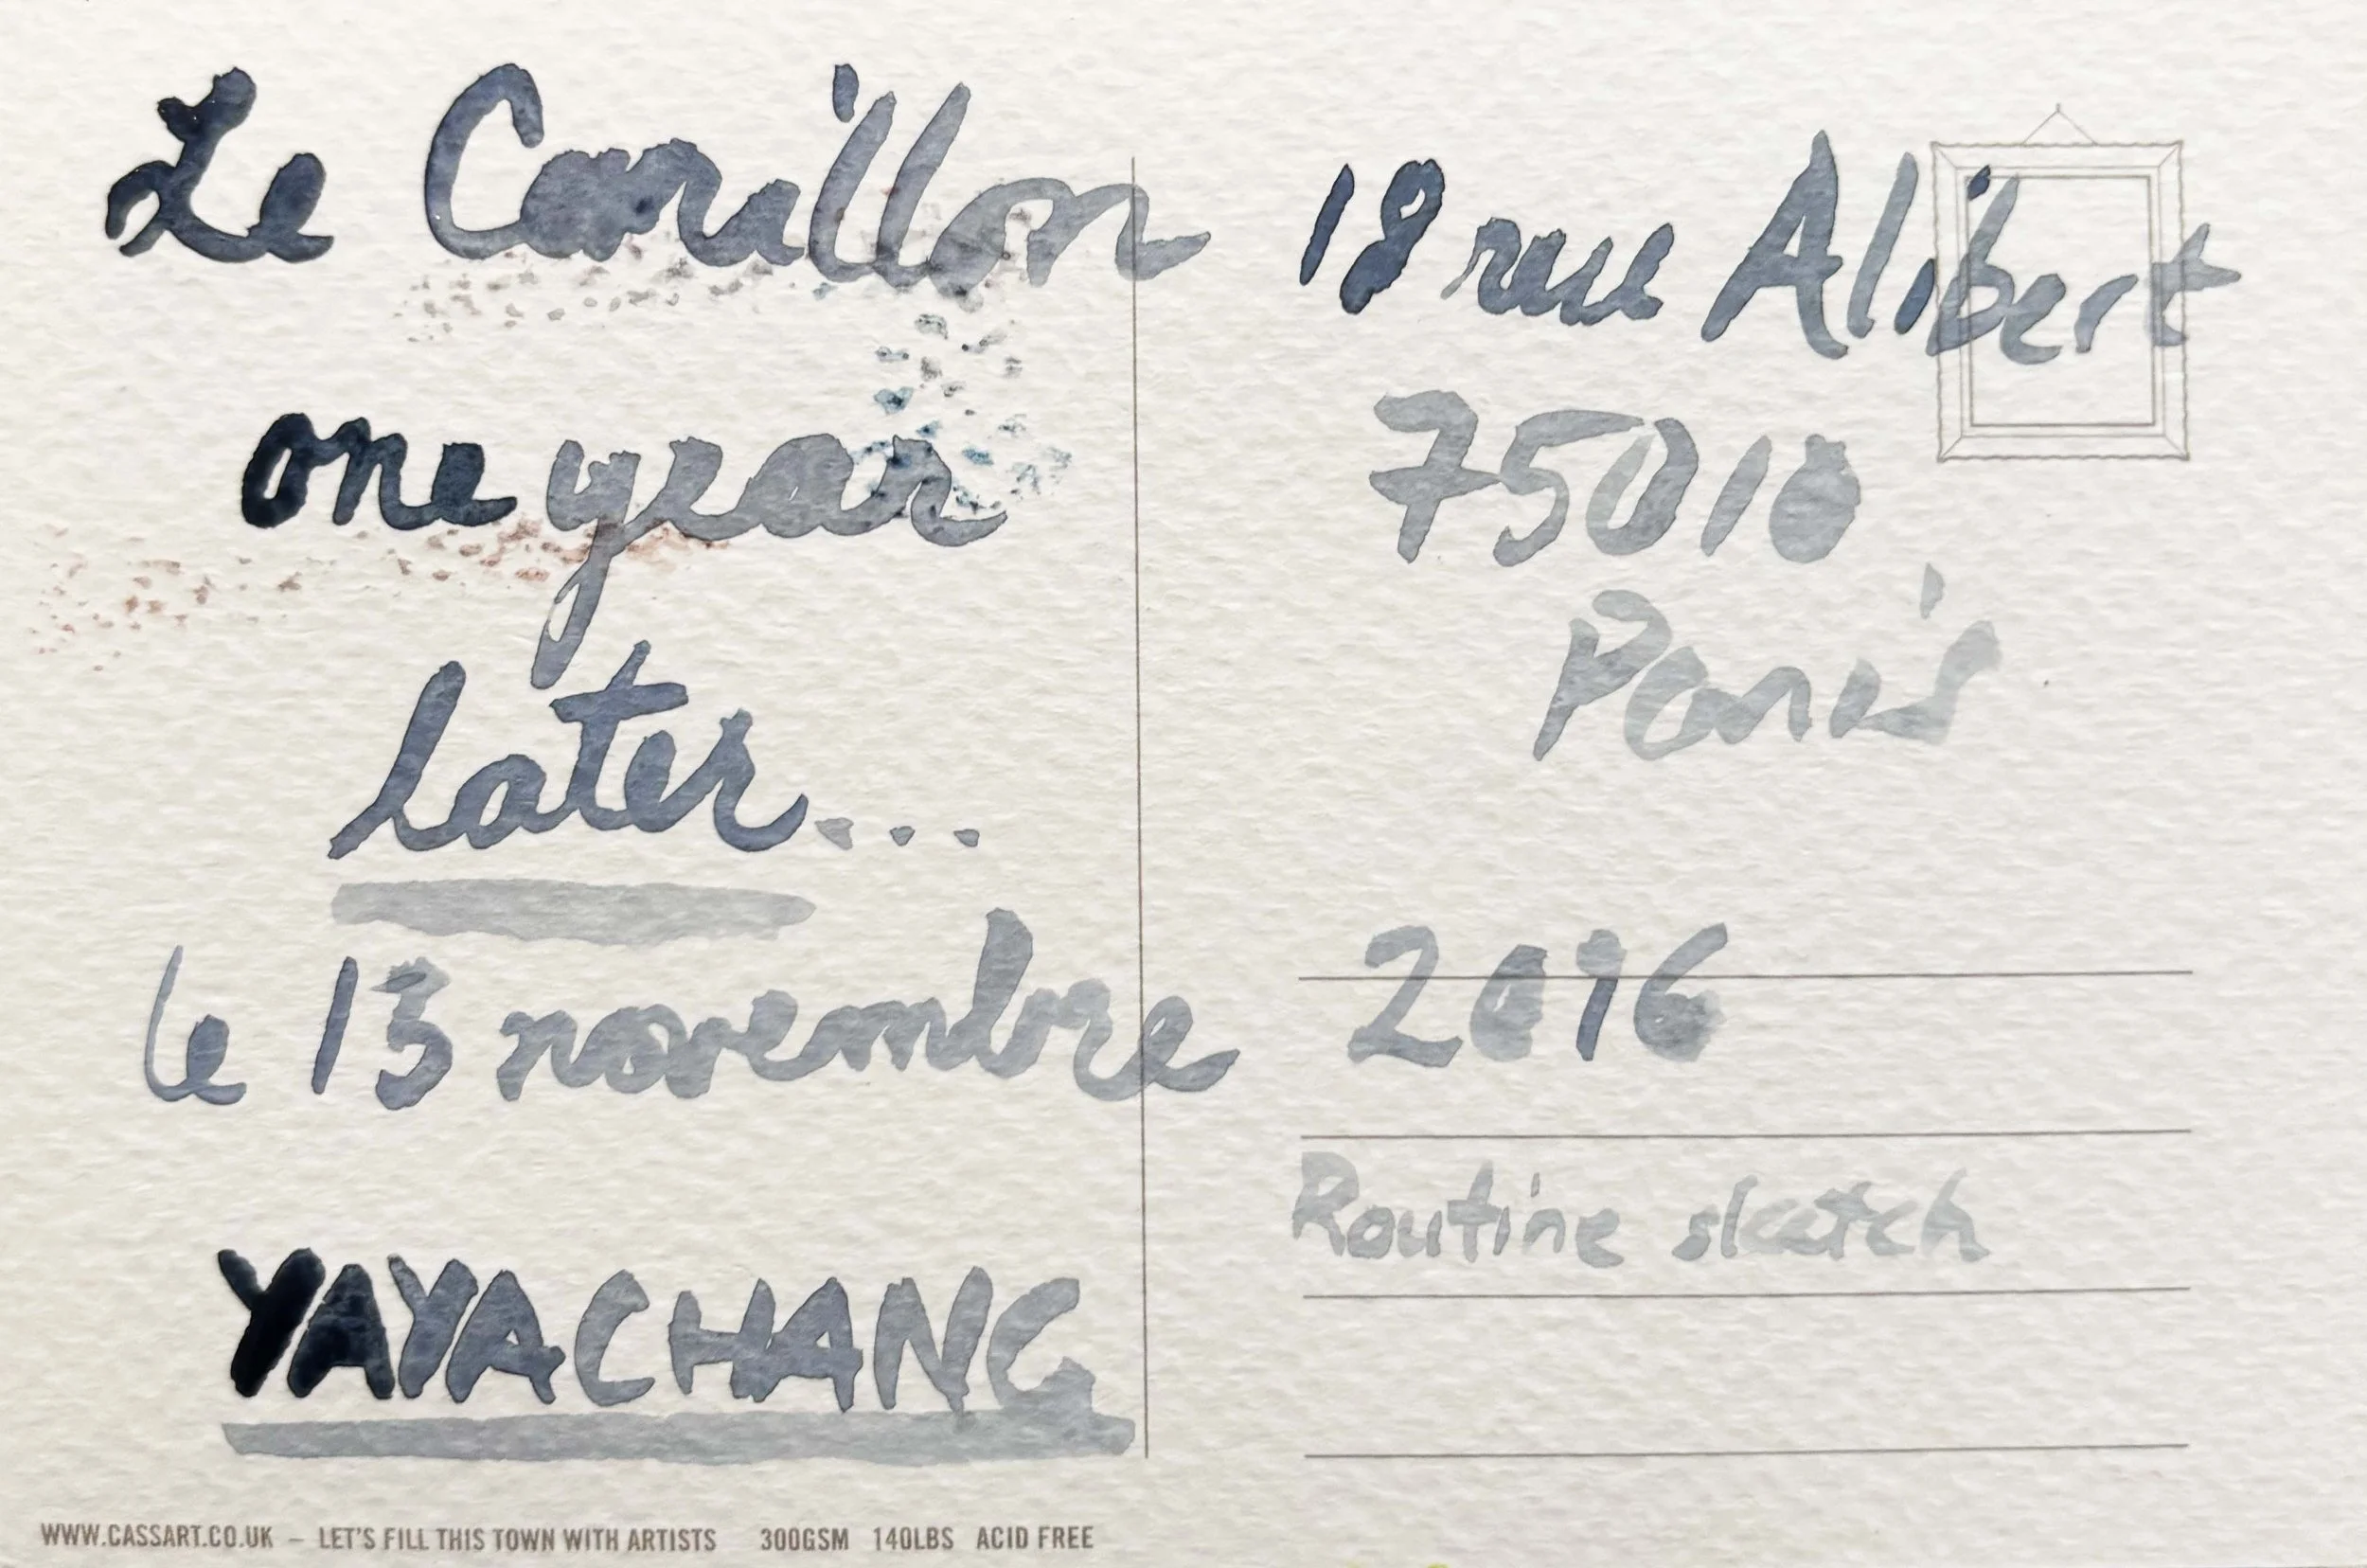 Le Carillon
one year
later...
le 13 novembre
YAYACHANG
18 rue Alibert
75010
Paris
2016
Routine sketch
WWW.CASSART.CO.UK – LET'S FILL THIS TOWN WITH ARTISTS 300GSM 140LBS ACID FREE